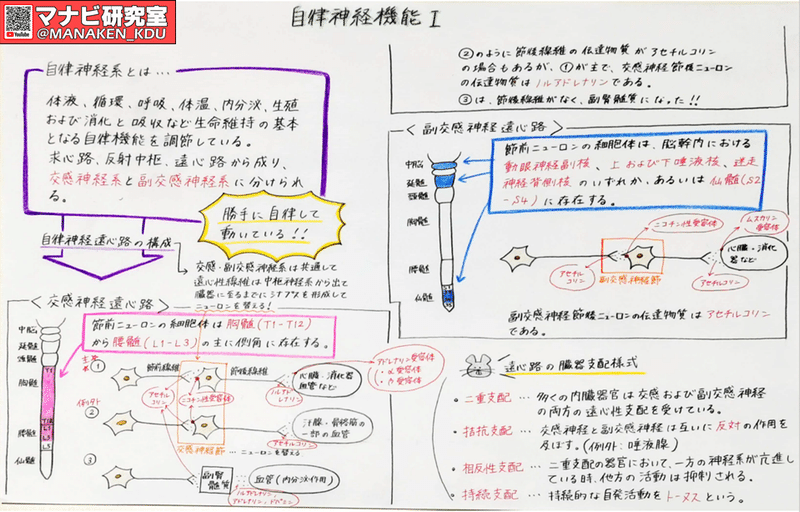 マナビ研究室
@MANAKEN_KDU
自律神経機能 I
自律神経系とは…
体液、循環、呼吸、体温、内分泌、生殖
および消化と吸収など生命維持の基本
となる自律機能を調節している。
求心路、反射中枢、遠心路から成り、
交感神経系と副交感神経系に分けられ
る。
勝手に自律して
動いている!!
自律神経遠心路の構成
交感・副交感神経系は共通して
遠心性線維は中枢神経系から出て
臓器に至るまでにシナプスを形成して
ニューロンを替える!
〈交感神経遠心路〉
節前ニューロンの細胞体は胸髄(T1-T12)
から腰髄(L1-L3)の主に側角に存在する。
中脳
延髄
頸髄
胸髄
腰髄
仙髄
T1
T12
L1
L2
L3
①
節前線維
節後線維
アセチル
コリン
ニコチン性受容体
ノルア
ドレナリン
心臓、消化器
血管など
アドレナリン受容体
・α受容体
・β受容体
例外
②
アセチルコリン
汗腺・骨格筋の
一部の血管
交感神経節…ニューロンを替える
③
副腎
髄質
血管(内分泌作用)
ノルアドレナリン、
アドレナリン、ドパミン
②のように節後線維の伝達物質がアセチルコリン
の場合もあるが、①が主で、交感神経節後ニューロン
の伝達物質はノルアドレナリンである。
③は、節後線維がなく、副腎髄質になった!!
〈副交感神経遠心路〉
節前ニューロンの細胞体は、脳幹内における
動眼神経副核、上および下唾液核、迷走
神経背側核のいずれか、あるいは仙髄(S2
-S4)に存在する。
中脳
延髄
頸髄
胸髄
腰髄
仙髄
ニコチン性受容体
ムスカリン
受容体
心臓・消化
器など
アセチル
コリン
副交感神経節
アセチル
コリン
副交感神経節後ニューロンの伝達物質はアセチルコリン
である。
遠心路の臓器支配様式
・二重支配…多くの内臓器官は交感および副交感神経
の両方の遠心性支配を受けている。
・拮抗支配…交感神経と副交感神経は互いに反対の作用を
及ぼす。(例外:唾液腺)
・相反性支配…二重支配の器官において、一方の神経系が亢進し
ている時、他方の活動は抑制される。
・持続支配…持続的な自発活動をトーヌスという。